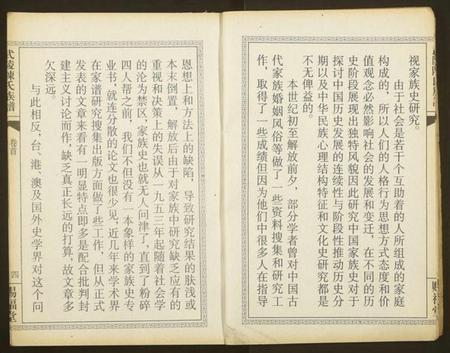 视家族史研究。
由于社会是若干个互助着的人所组成的家庭
构成的，所以人们的人格行为思想方式态度和价
值观念必然影响社会的发展和变迁，在不同的历
史阶段展现出独特风貌因此研究中国家族史对于
探讨中国历史发展的连续性与阶段性推动历史分
期以及中华民族心理结构特征和文化史研究都是
不无俾益的。
本世纪初至解放前夕，部分学者曾对中国古
代家族婚姻风俗等做了一些资料搜集和研究工
作，取得了一些成绩但因为他们中很多人在指导
思想上和方法上的缺陷，导致研究结果的肤浅或
本末倒置，解放后由于对家族中研究缺乏应有的
重视和决策上的失误从一九五三年起随着社会学
的沦为禁区，家族史也就无人问津了，直到了粉碎
四人帮之前，我们不但没有一本象样的家族史专
业书，就连分散的论文也很少见；近几年来学术界
在家谱研究搜集出版方面做了些工作，但从正式
发表的文章来看有一明显特点即多是配合批判封
建主义讨论而作，缺乏真正长远的打算，故文章多
欠深远。
与此相反，台、港、澳及国外史学界对这个问
武陵陳氏族譜
卷首
四
賜福堂